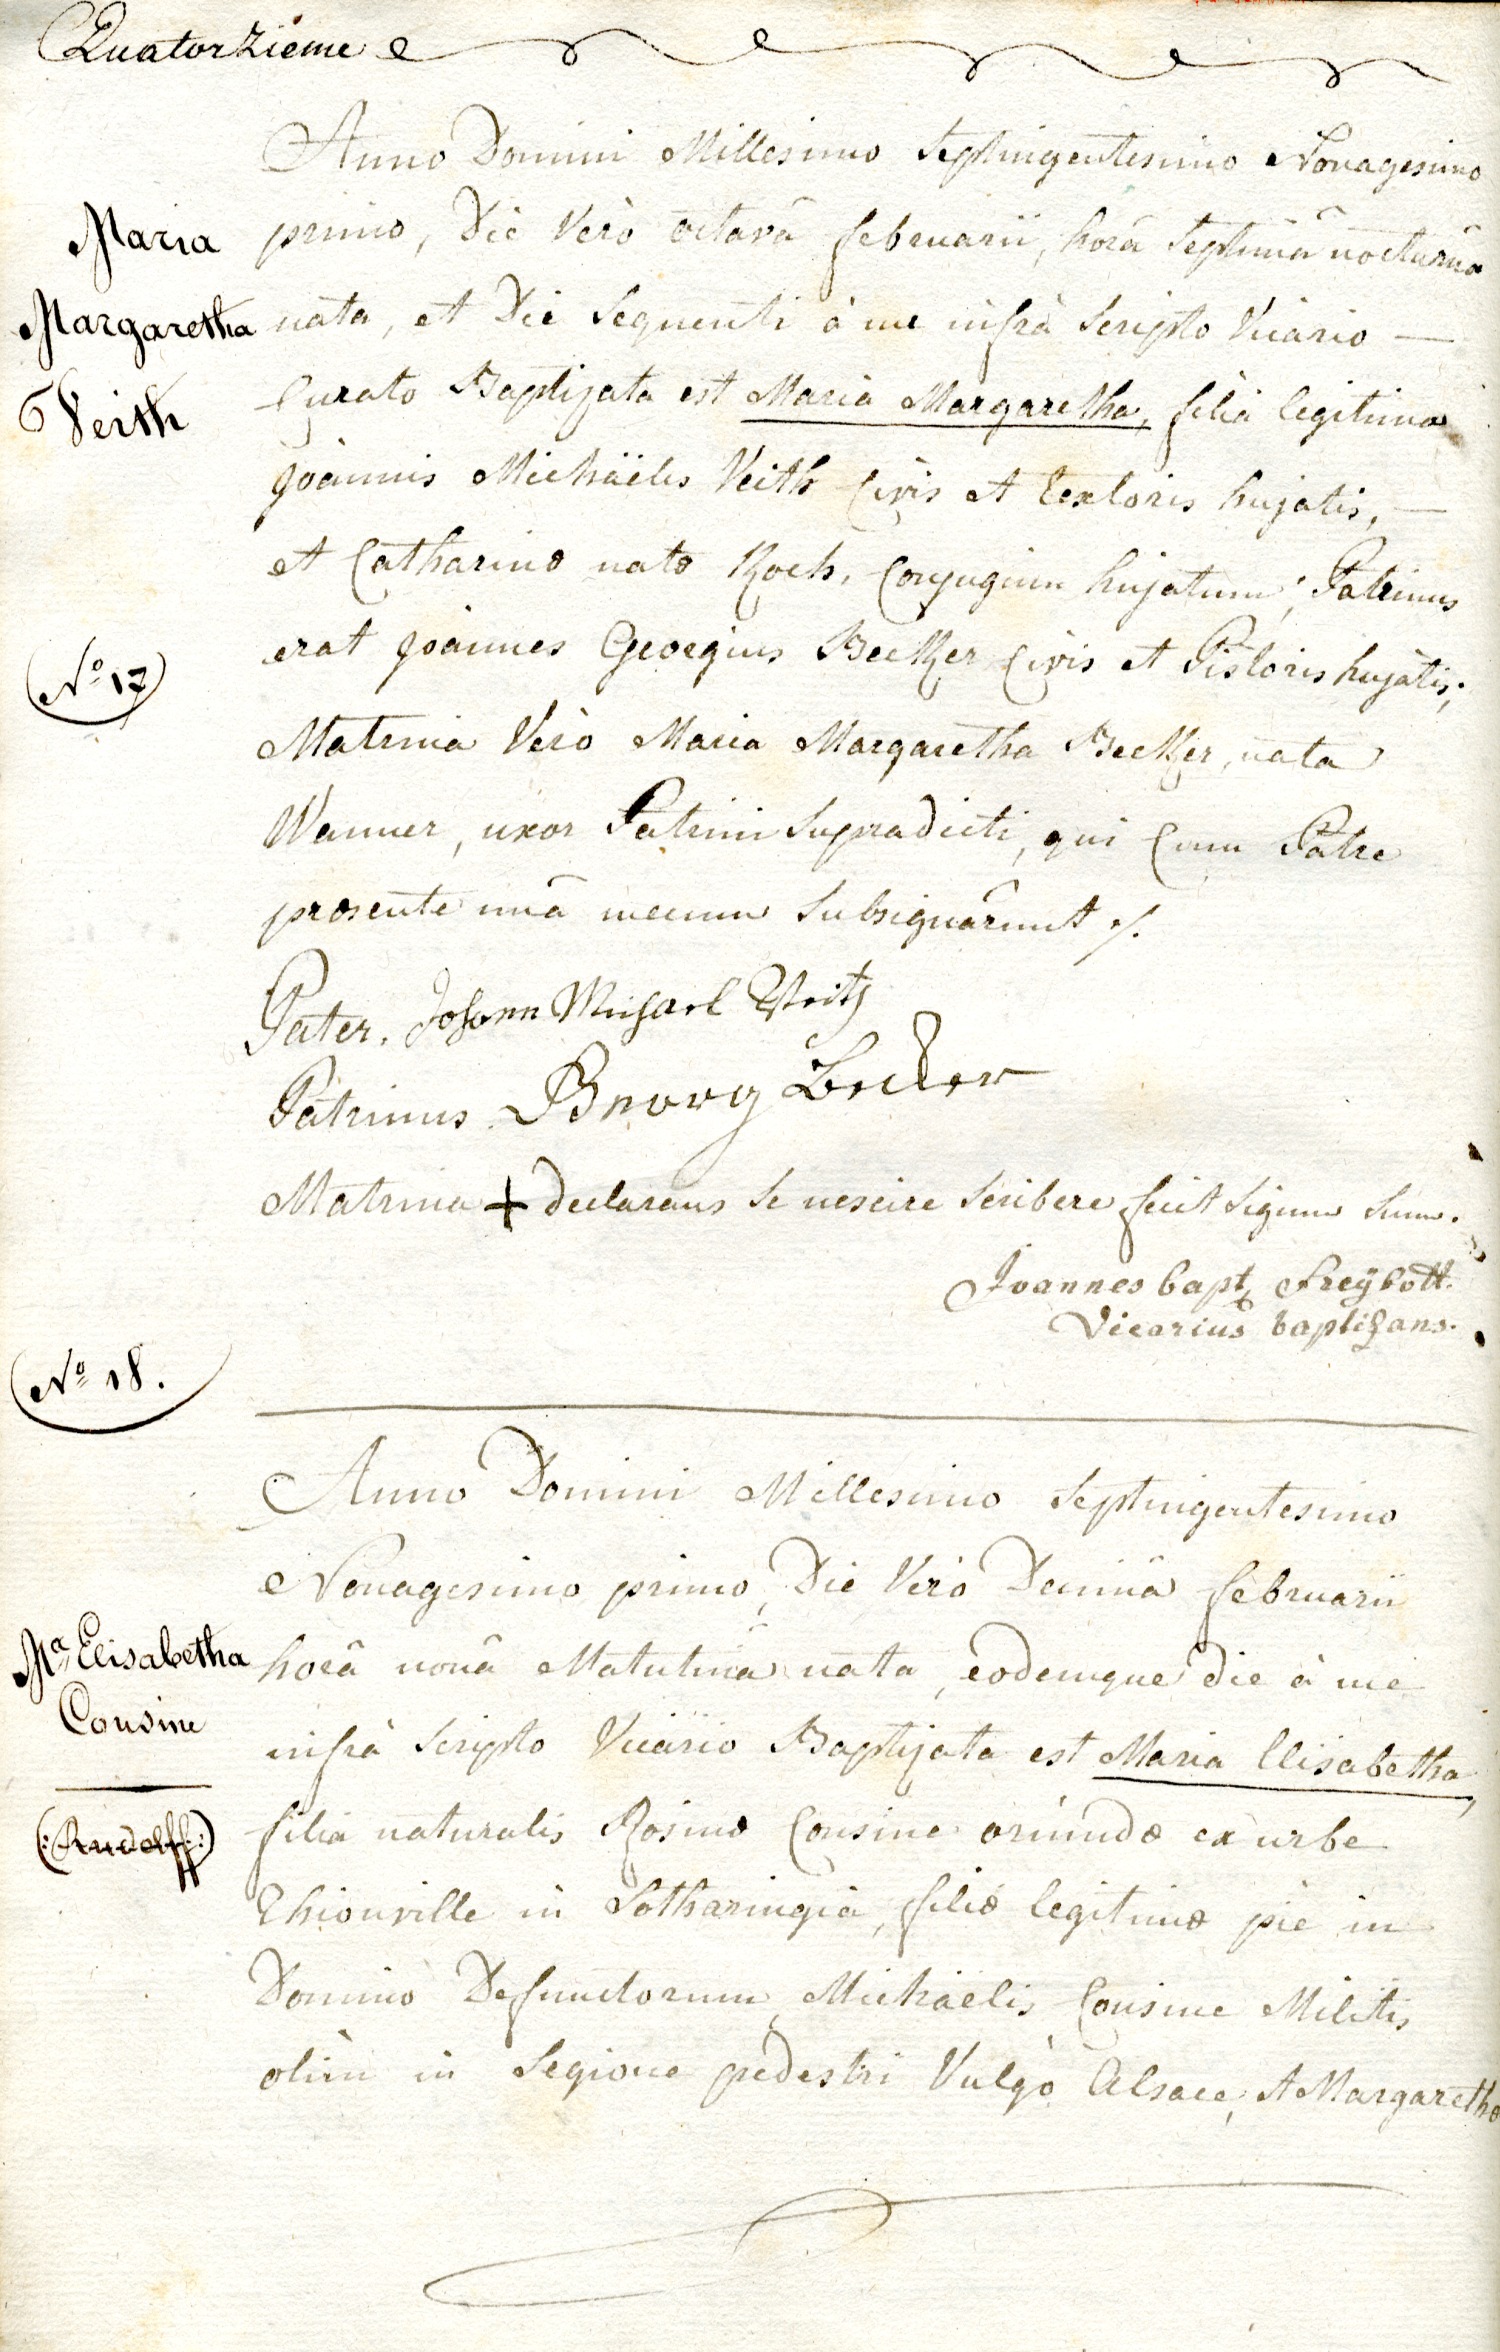 Quatorzieme
Anno Domini Millesimo Septingentesimo Nonagesimo
Maria
primo, Die Verò octavâ februarii, horâ Septimâ nocturnâ
Margaretha
nata, et Die Sequenti à me infrà Scripto Vicario —
Veith
Curato Baptizata est Maria Margaretha, filia legitima
Joannis Michäelis Veith Civis et textoris hujatis, —
et Catharinæ natæ Koch, Conjugum hujatum; Patrinus
erat Joannes Georgius Becker Civis et Pistoris hujatis;
No 17
Matrina Verò Maria Margaretha Becker, nata
Wanner, uxor Patrini Supradicti, qui Cum Patre
præsente unâ mecum Subsignârunt ./.
Pater. Johann Michael Veith
Patrinus. Georg Becker
Matrina + declarans Se nescire Scribere fecit Signum Suum.
Joannes bapt. Freÿbott.
Vicarius baptizans.
No 18.
Anno Domini Millesimo Septingentesimo
Nonagesimo primo, Die Verò Decimâ februarii
Ma Elisabetha
horâ nonâ Matutinâ nata, eodemque die à me
Cousine
infrà Scripto Vicario Baptizata est Maria Elisabetha,
(:Rudolff:)
filia naturalis Rosinæ Cousine oriundæ ex urbe
Thionville in Lotharingiâ, filiæ legitimæ piè in
Domino Defunctorum Michäelis Cousine Militis
olim in Legione pedestri Vulgò Alsace, et Margarethæ